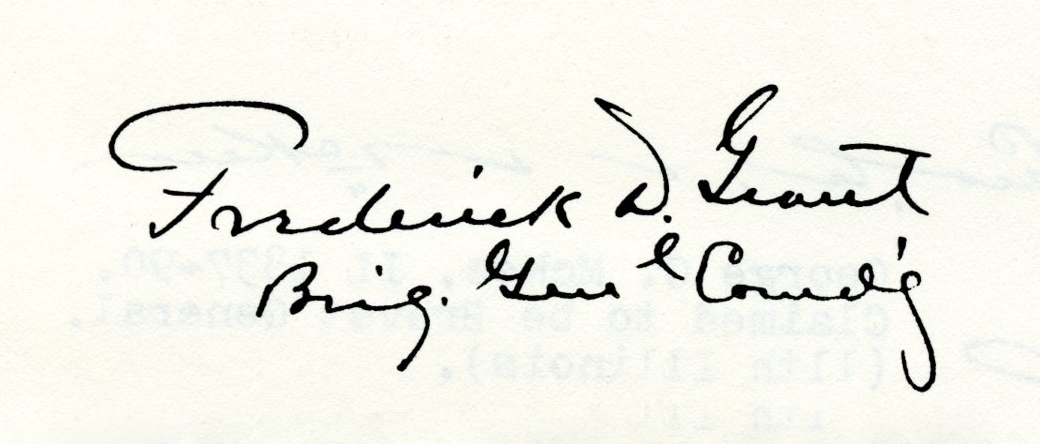 Frederick D. Grant
Brig. Genl Comd'g